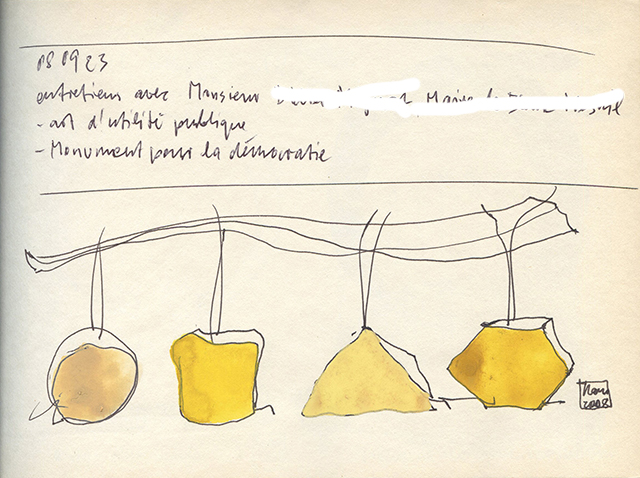 080923
entretiens avec Monsieur
- art d'utilité publique
- Monument pour la démocratie
2008